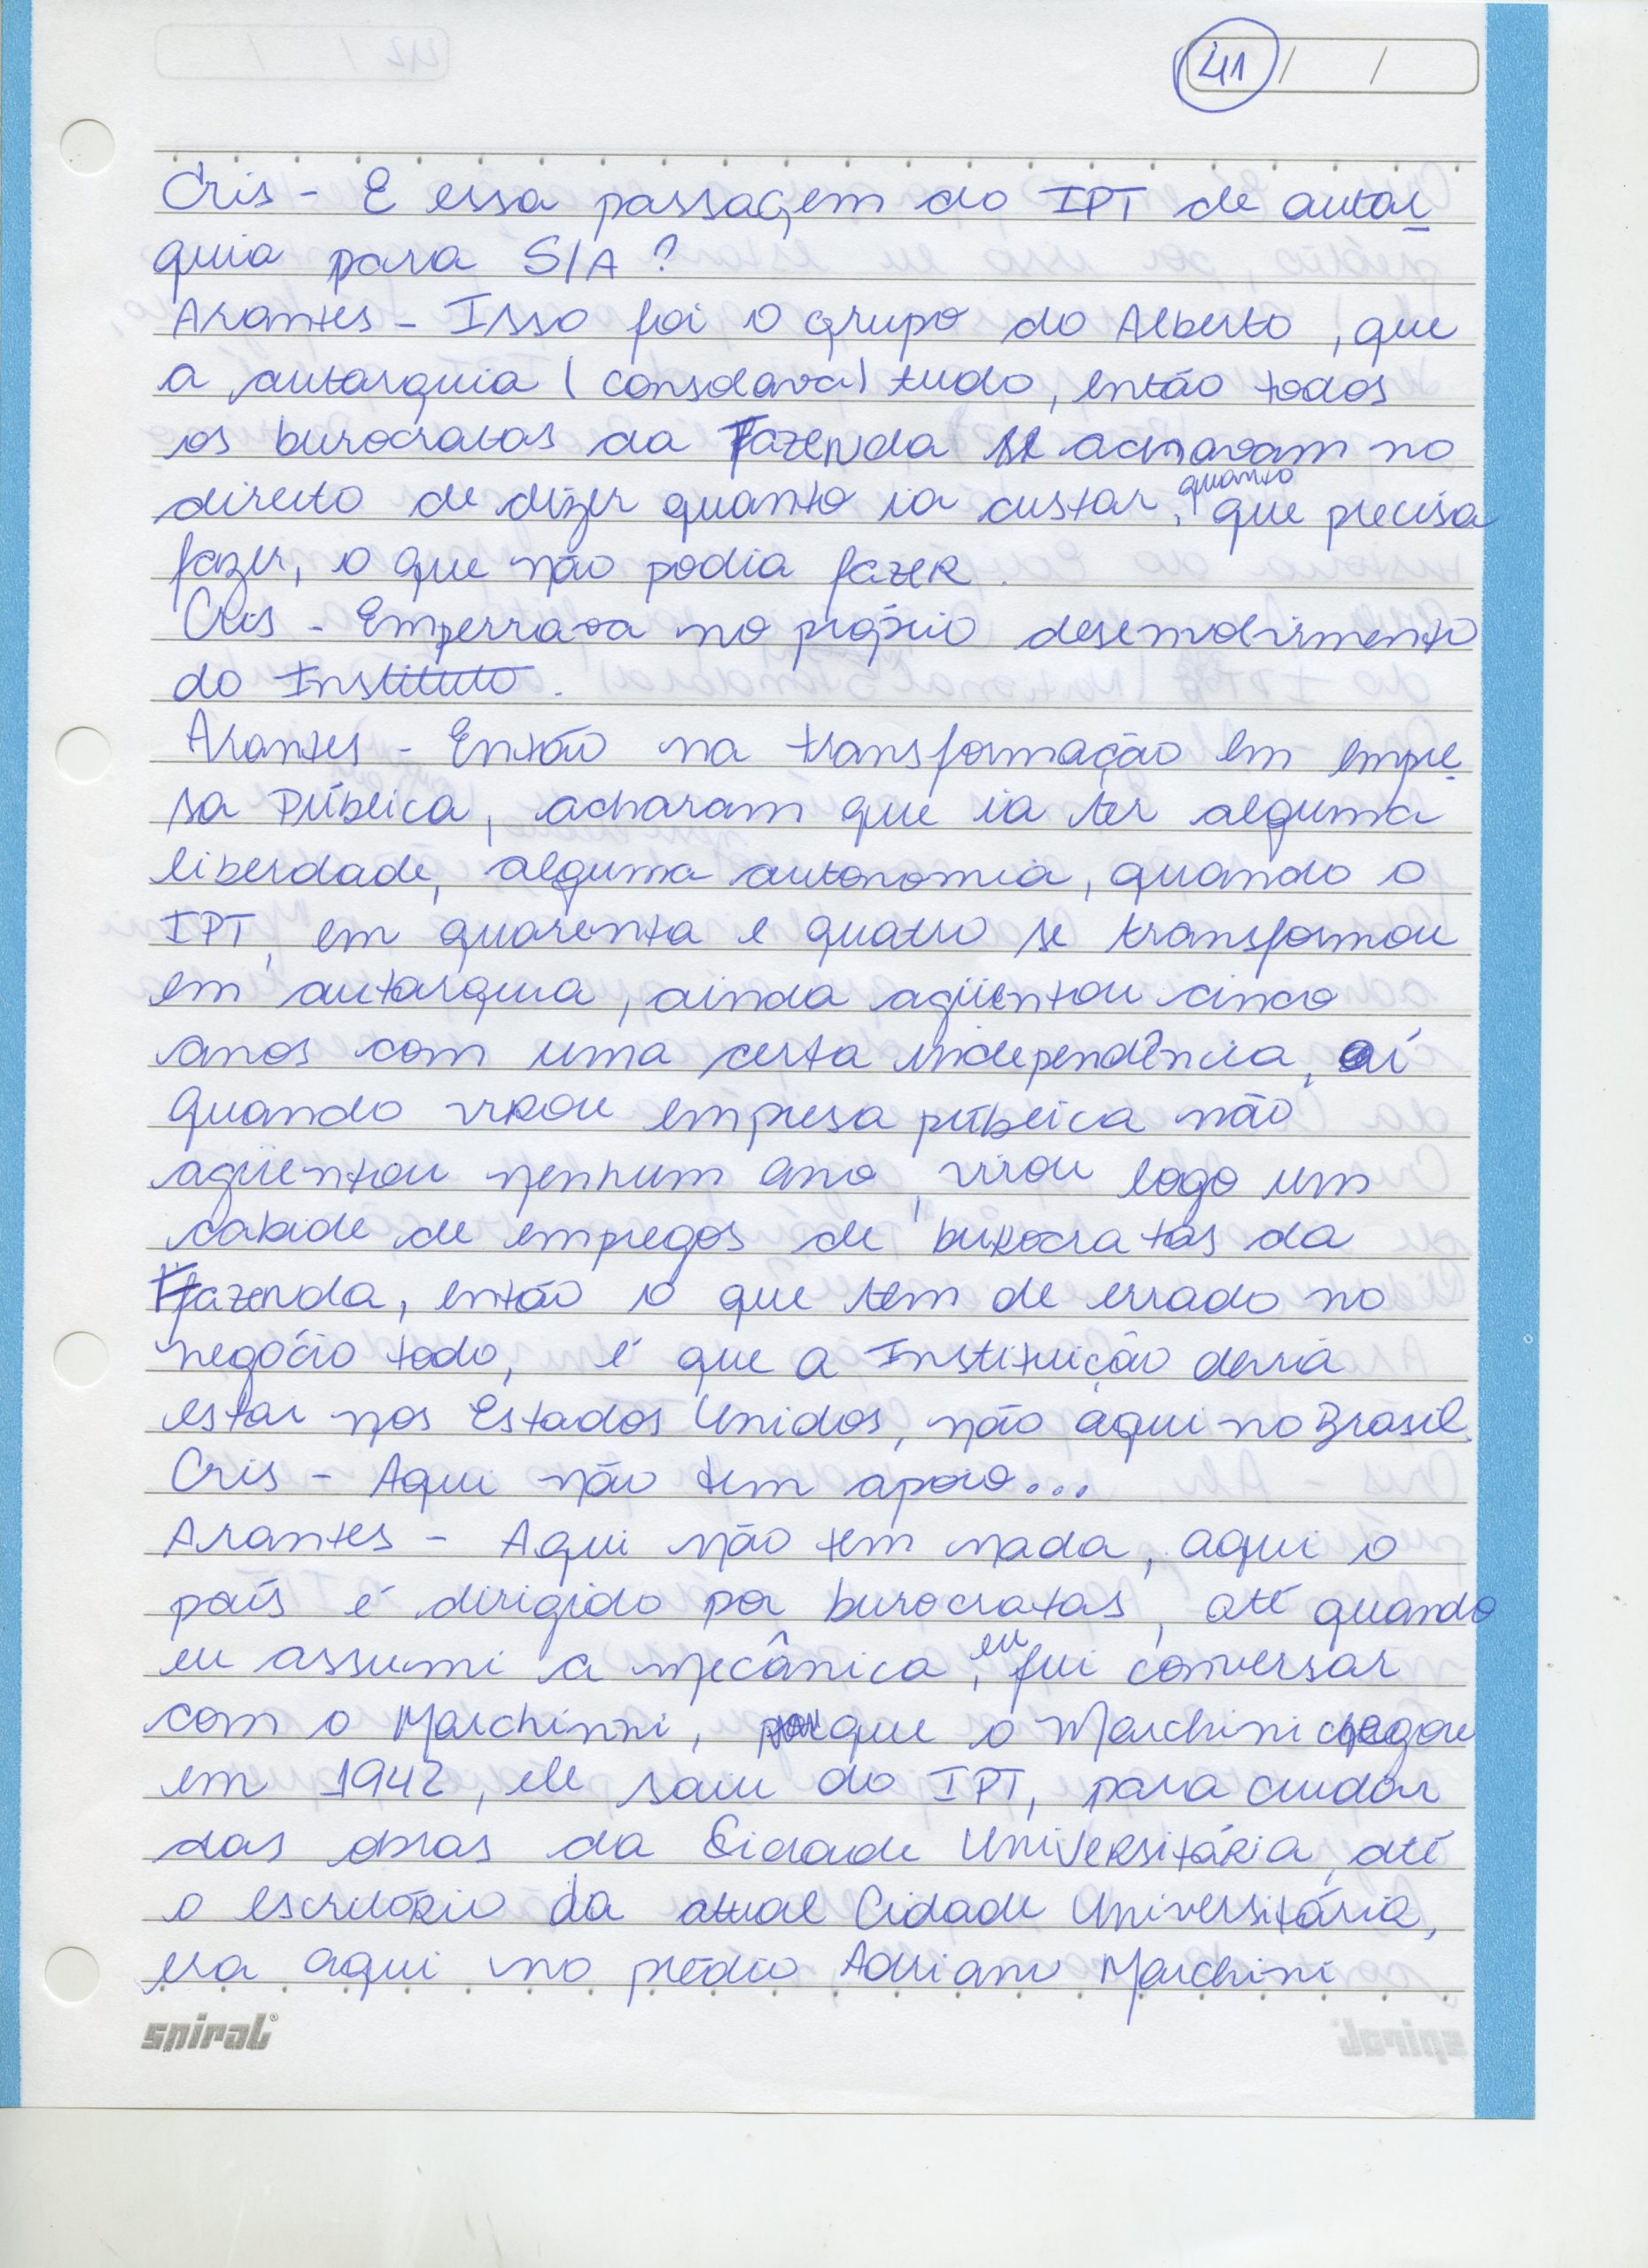 41 / /
Cris - E essa passagem do IPT de autar
quia para S/A ?
Arantes - Isso foi o grupo do Alberto, que
a autarquia (consolava) tudo, então todos
os burocratas da Fazenda se achavam no
direito de dizer quanto ia custar, quanto que precisa
fazer, o que não podia fazer.
Cris - Emperrava no próprio desenvolvimento
do Instituto.
Arantes - Então na transformação em empre
sa Pública, acharam que ia ter alguma
liberdade, alguma autonomia, quando o
IPT, em quarenta e quatro se transformou
em autarquia, ainda agüentou cinco
anos com uma certa independência, aí
quando virou empresa pública não
agüentou nenhum ano, virou logo um
cabide de empregos de burocratas da
Fazenda, então o que tem de errado no
negócio todo, é que a Instituição devia
estar nos Estados Unidos, não aqui no Brasil.
Cris - Aqui não tem apoio...
Arantes - Aqui não tem nada, aqui o
país é dirigido por burocratas, até quando
eu assumi a mecânica, eu fui conversar
com o Marchinni, porque o Marchini chegou
em 1942, ele saiu do IPT, para cuidar
das obras da Cidade Universitária, até
o escritório da atual Cidade Universitária,
era aqui no prédio Adriano Marchini
spiral®